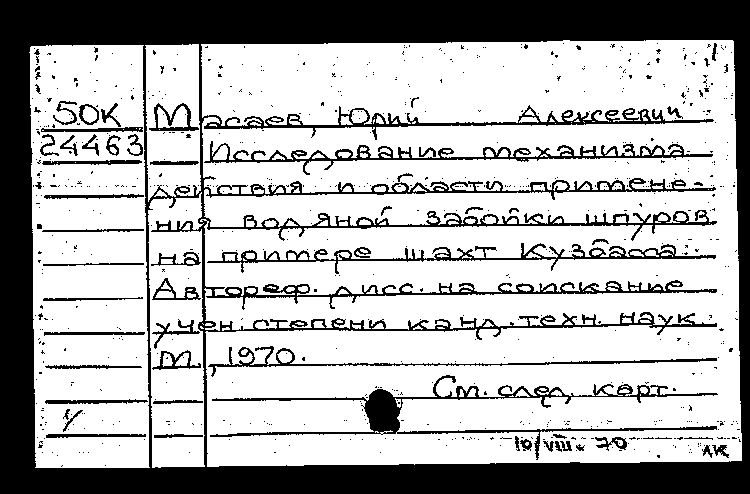 50К Масаев, Юрий Алексеевич
24463 Исследование механизма
действия и области примене-
ния водяной забойки шпуров
на примере шахт Кузбасса.
Автореф. дисс. на соискание
учен. степени канд. техн. наук.
М., 1970.
См. след, карт.
10/VIII. 70
ЛК